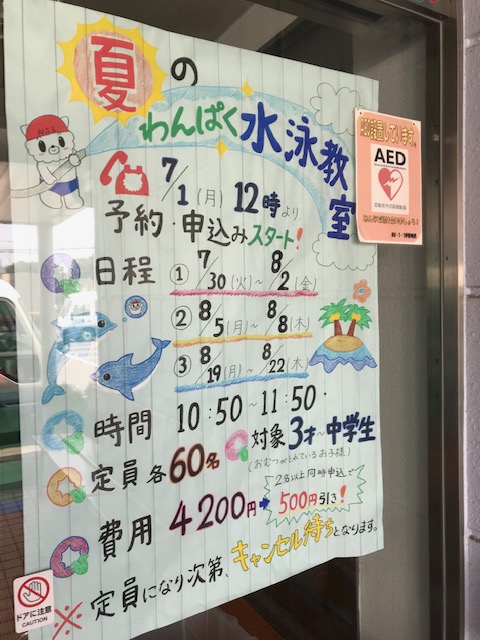 夏の
わんぱく水泳教室
7/1(月) 12時より
予約・申込みスタート!
日程 ① 7/30(火)~8/2(金)
② 8/5(月)~8/8(木)
③ 8/19(月)~8/22(木)
時間 10:50~11:50
定員 各60名 対象 3才~中学生
(おむつがとれているお子様)
費用 4200円→
2名以上同時申込で
500円引き!
※定員になり次第、キャンセル待ちとなります。
AED
ドアに注意
CAUTION